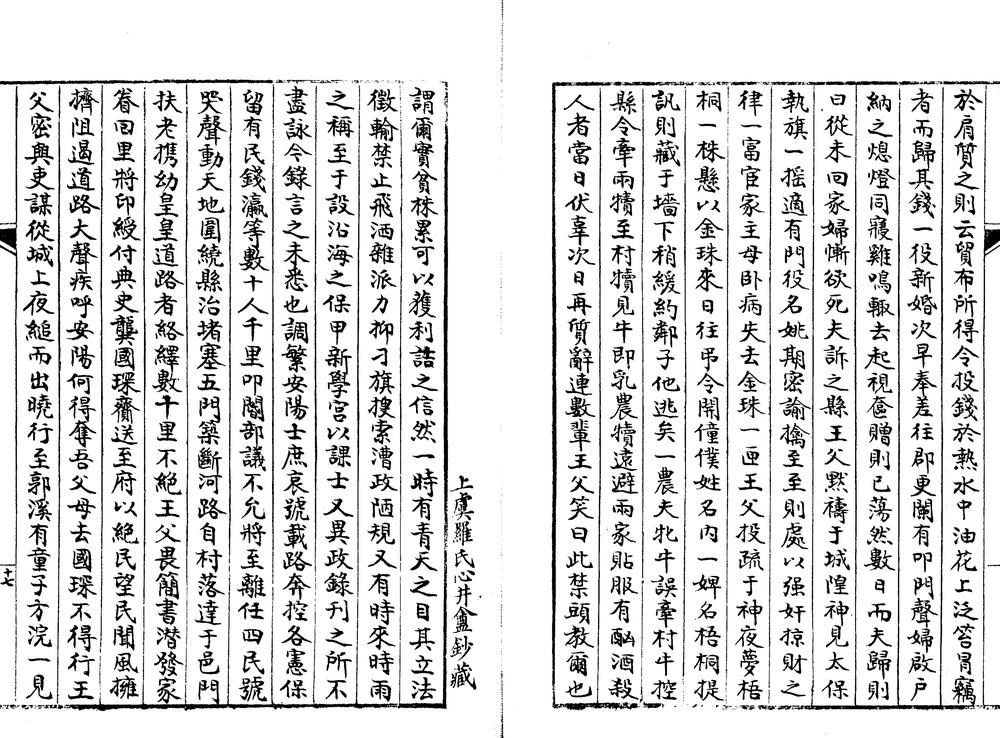 於肩質之則云貿布所得令投錢於熱水中油花上泛笞冒竊
者而歸其錢一役新婚次早奉差往郡更闌有叩門聲婦啟戶
納之熄燈同寢雞鳴輒去起視奩贈則已蕩然數日而夫歸則
曰從未回家婦慚欲死夫訴之縣王父黙禱于城隍神見太保
執旗一摇適有門役名姚期密諭擒至至則處以强奸掠財之
律一富宦家主母卧病失去金珠一匣王父投疏于神夜夢梧
桐一株懸以金珠來日往弔令開僮僕姓名内一婢名梧桐提
訊則藏于墻下稍緩約鄰子他逃矣一農夫牝牛誤牽村牛控
縣令牽兩犢至村犢見牛即乳農犢遠避兩家貼服有酗酒殺
人者當日伏辜次日再質辭連數輩王父笑曰此禁頭教爾也
謂爾實貧株累可以獲利詰之信然一時有青天之目其立法
徵輸禁止飛洒雜派力抑刁旗搜索漕政陋規又有時來時雨
之稱至于設沿海之保甲新學宫以課士又異政錄刊之所不
盡詠今錄言之未悉也調繁安陽士庶哀號載路奔控各憲保
留有民錢瀛等數十人千里叩閽部議不允將至離任四民號
哭聲動天地圍繞縣治堵塞五門築斷河路自村落達于邑門
扶老携幼皇皇道路者絡繹數十里不絶王父畏簡書潛發家
眷回里將印綬付典史龔國琛齎送至府以絶民望民聞風擁
擠阻遏道路大聲疾呼安陽何得奪吾父母去國琛不得行王
父密與吏謀從城上夜縋而出曉行至郭溪有童子方浣一見
上虞羅氏心井盦鈔藏
十七